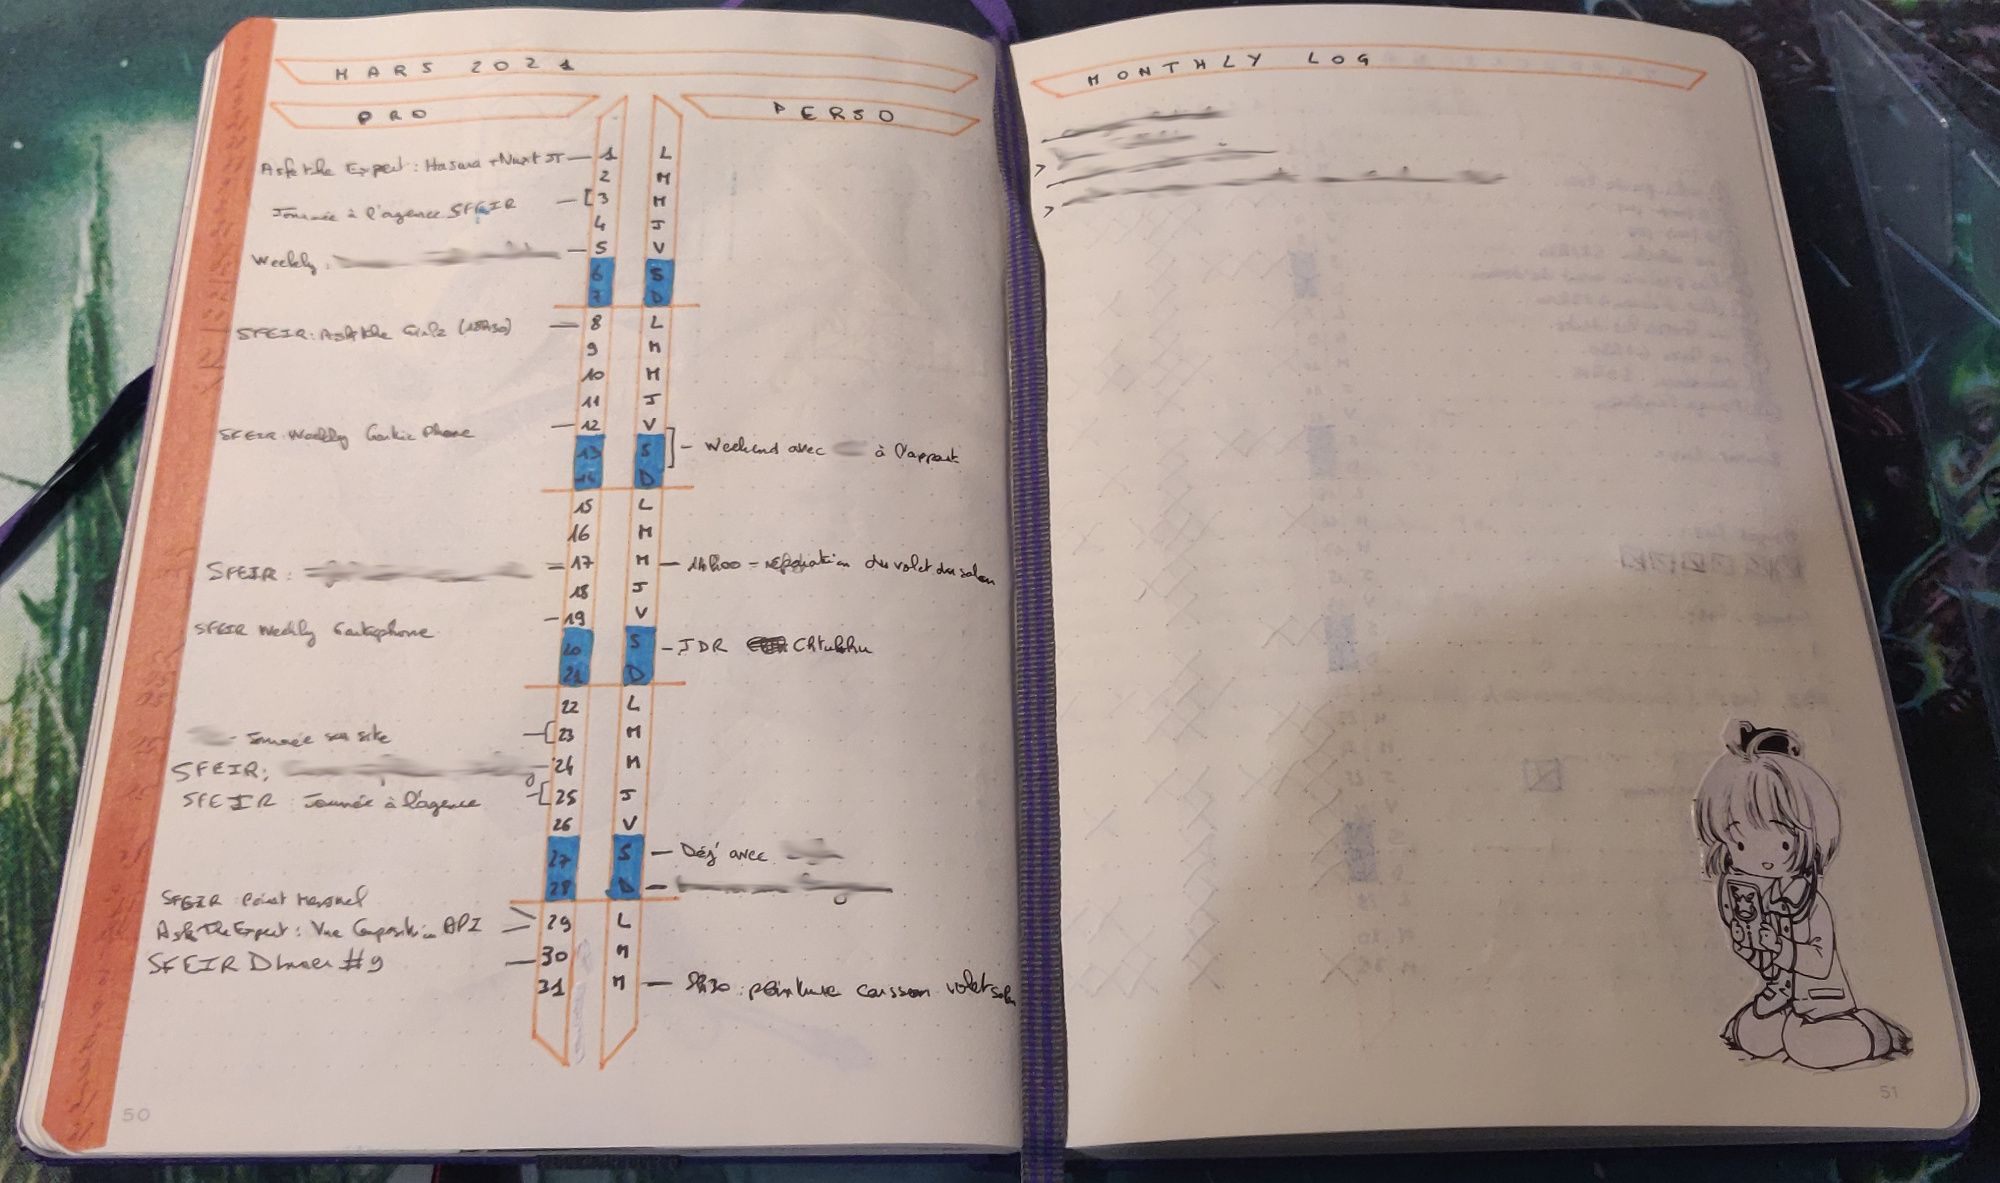 MARS 2021
PRO
PERSO
Ask the Expert : Hasura + Nuxt JS — 1 L
2 M
Journée à l'agence SFEIR — [ 3 M
4 J
Weekly : — 5 V
6 S
7 D
SFEIR : Ask the Girlz (18h30) — 8 L
9 M
10 M
11 J
SFEIR Weekly Gartic Phone — 12 V
13 S ] — Weekend avec à l'appart
14 D
15 L
16 M
SFEIR : — 17 M — 14h00 = réparation du volet du salon
18 J
SFEIR Weekly Garticphone — 19 V
20 S — JDR Chtulhu
21 D
22 L
- Journée sur site — [ 23 M
SFEIR : — 24 M
SFEIR : Journée à l'agence — [ 25 J
26 V
27 S — Déj' avec
28 D —
SFEIR Point Mensuel
AskTheExpert : Vue Composition API > 29 L
SFEIR #9 — 30 M
31 M — peinture caisson volet salon
50
MONTHLY LOG
>
>
51